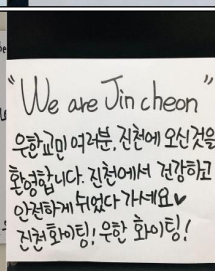 "We are Jin cheon"
우한교민 여러분, 진천에 오신것을
환영합니다. 진천에서 건강하고
안전하게 쉬었다 가세요♥
진천 화이팅! 우한 화이팅!